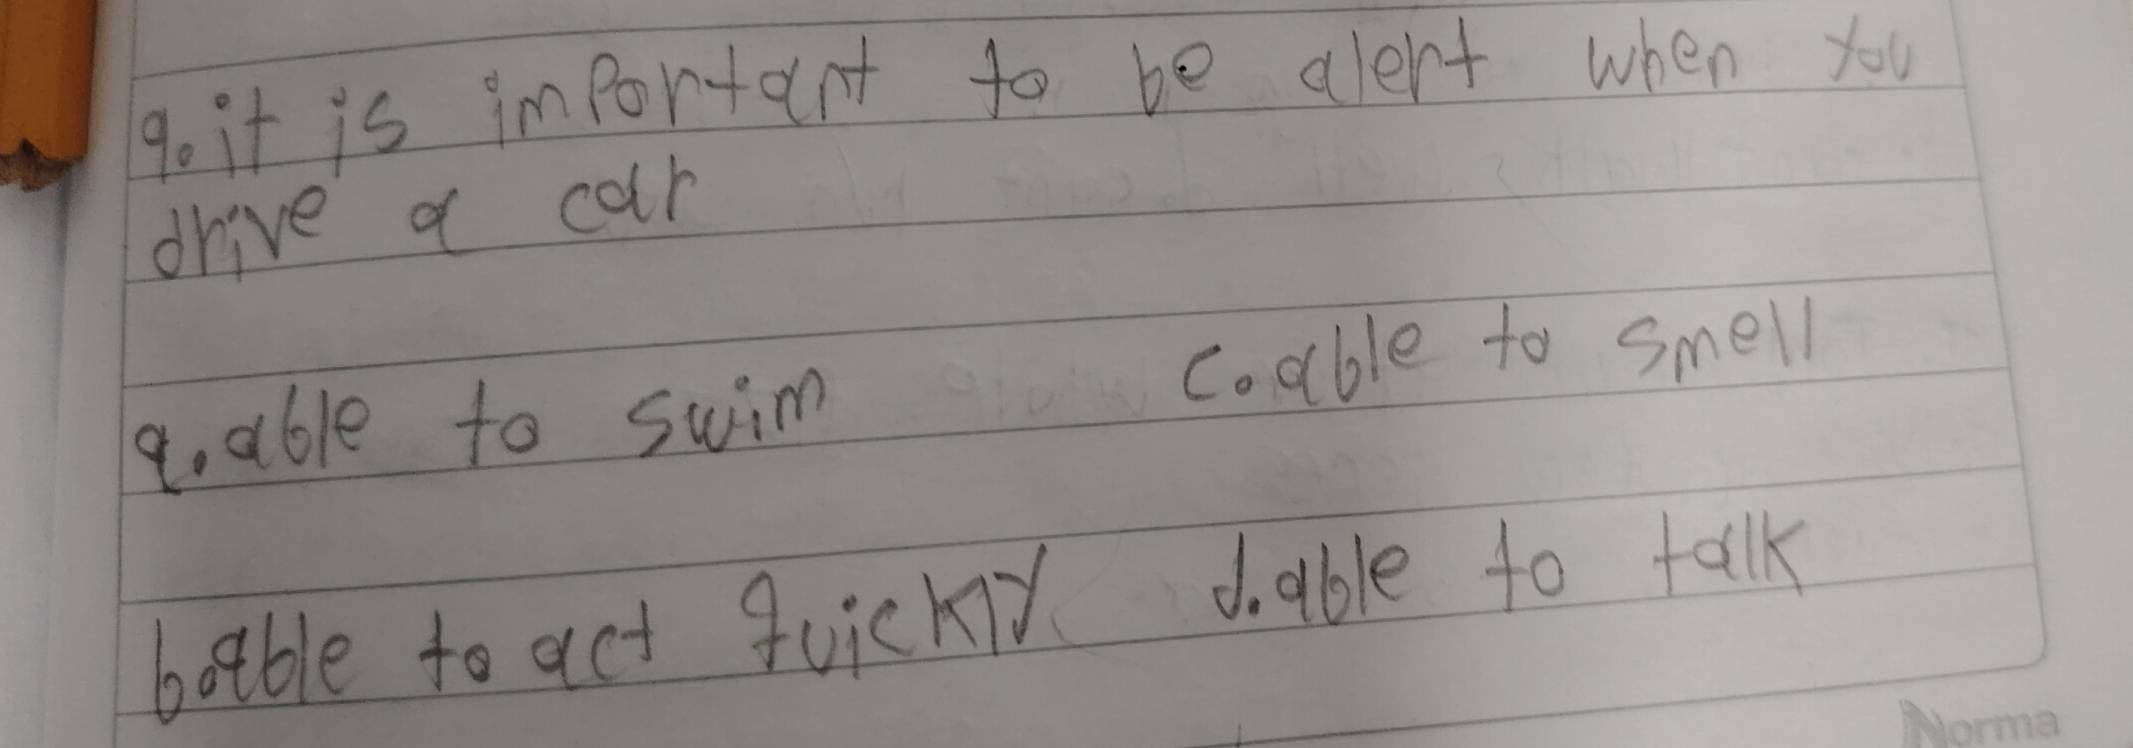 9. it is important to be alert when you
drive a car
a. able to swim c. able to smell
b. able to act quickly d. able to talk
Norma